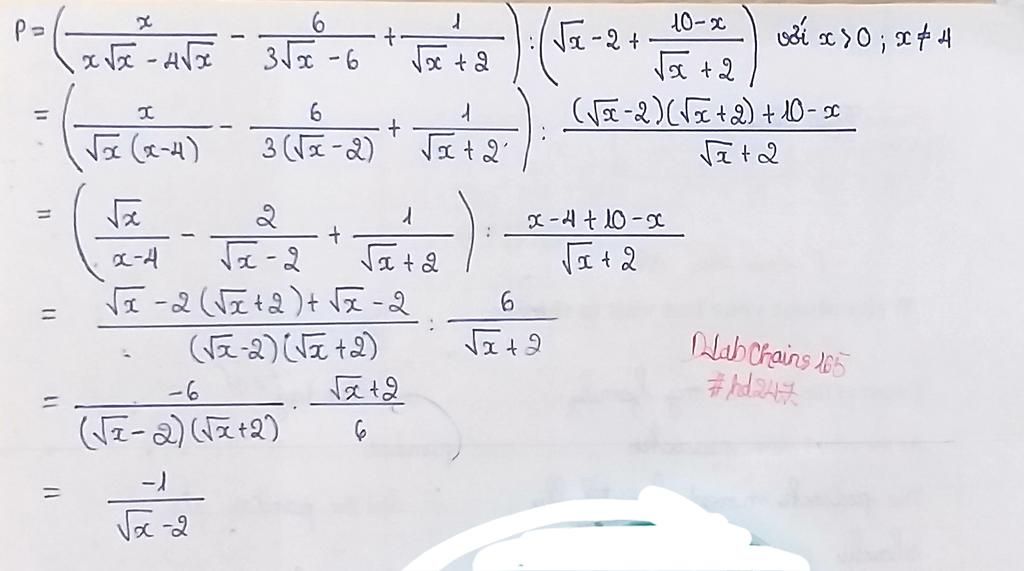 P = (x/(x√x - 4√x) - 6/(3√x - 6) + 1/(√x + 2)) : (√x - 2 + (10 - x)/(√x + 2)) với x > 0 ; x ≠ 4
= (x/(√x (x-4)) - 6/(3(√x - 2)) + 1/(√x + 2)) : ((√x - 2)(√x + 2) + 10 - x)/(√x + 2)
= (√x/(x-4) - 2/(√x - 2) + 1/(√x + 2)) : (x - 4 + 10 - x)/(√x + 2)
= (√x - 2(√x + 2) + √x - 2)/((√x - 2)(√x + 2)) : 6/(√x + 2)
= -6/((√x - 2)(√x + 2)) . (√x + 2)/6
= -1/(√x - 2)
#hd247